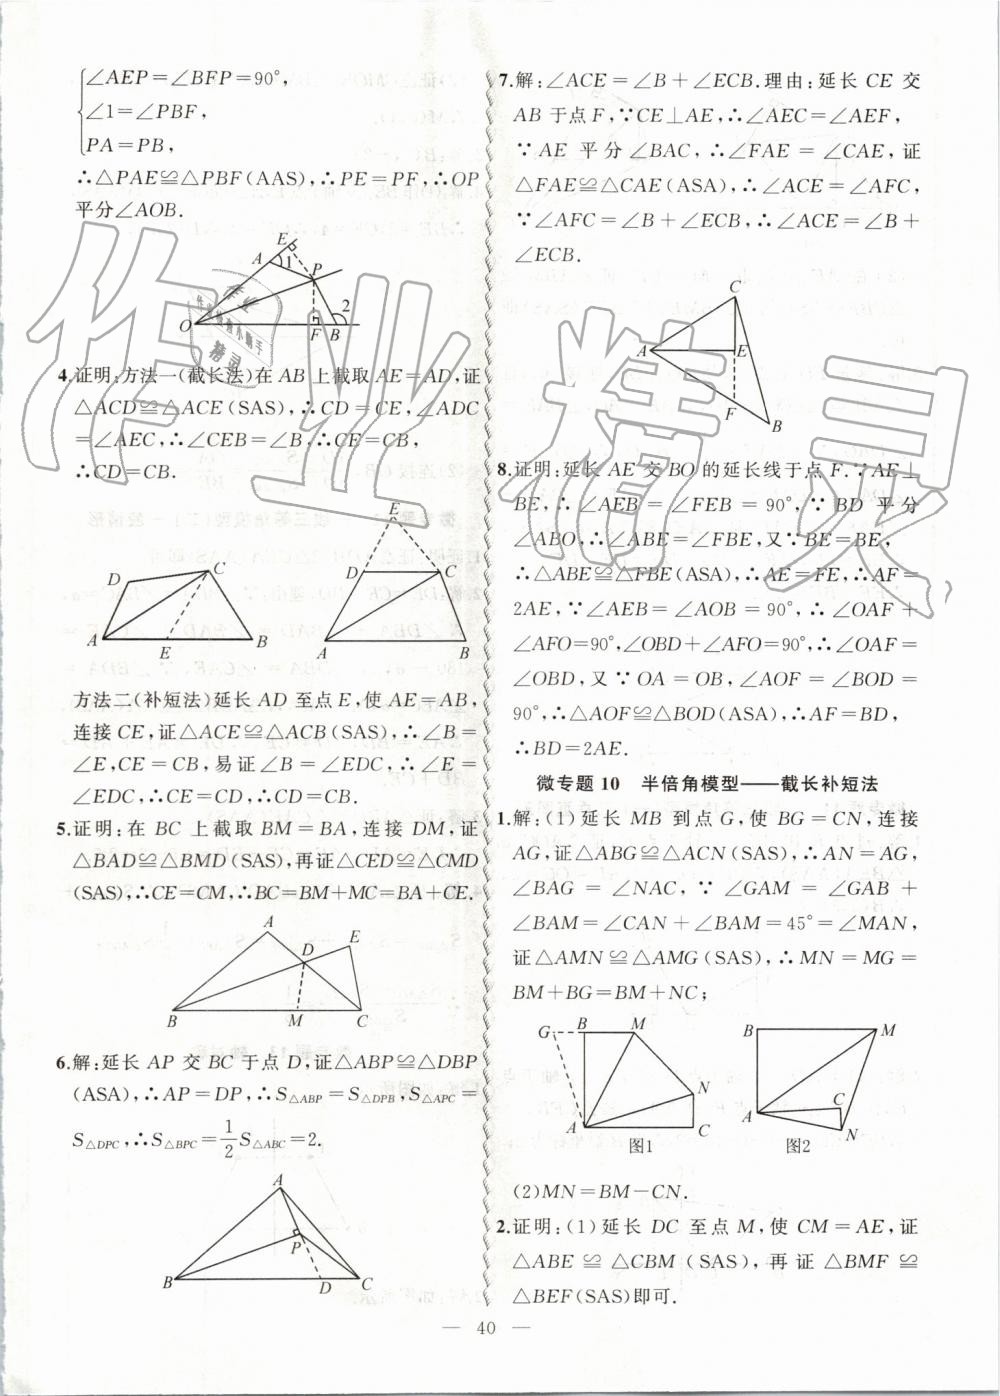 ∠AEP=∠BFP=90°,
∠1=∠PBF,
PA=PB,
∴△PAE≌△PBF(AAS),∴PE=PF,∴OP
平分∠AOB.
E
A
1
P
2
O
F
B
4.证明:方法一(截长法)在 AB 上截取 AE=AD,证
△ACD≌△ACE(SAS),∴CD=CE,∠ADC
=∠AEC,∴∠CEB=∠B,∴CE=CB,
∴CD=CB.
D
C
A
E
B
E
D
C
A
B
方法二(补短法)延长 AD 至点 E,使 AE=AB,
连接 CE,证△ACE≌△ACB(SAS),∴∠B=
∠E,CE=CB,易证∠B=∠EDC,∴∠E=
∠EDC,∴CE=CD,∴CD=CB.
5.证明:在 BC 上截取 BM=BA,连接 DM,证
△BAD≌△BMD(SAS),再证△CED≌△CMD
(SAS),∴CE=CM,∴BC=BM+MC=BA+CE.
A
D
E
B
M
C
6.解:延长 AP 交 BC 于点 D,证△ABP≌△DBP
(ASA),∴AP=DP,∴S△ABP=S△DPB,S△APC=
S△DPC,∴S△BPC=1/2S△ABC=2.
A
P
B
D
C
7.解:∠ACE=∠B+∠ECB.理由:延长 CE 交
AB 于点 F,∵CE⊥AE,∴∠AEC=∠AEF,
∵AE 平分∠BAC,∴∠FAE=∠CAE,证
△FAE≌△CAE(ASA),∴∠ACE=∠AFC,
∵∠AFC=∠B+∠ECB,∴∠ACE=∠B+
∠ECB.
C
A
E
F
B
8.证明:延长 AE 交 BO 的延长线于点 F.∵AE⊥
BE,∴∠AEB=∠FEB=90°,∵BD 平分
∠ABO,∴∠ABE=∠FBE,又∵BE=BE,
∴△ABE≌△FBE(ASA),∴AE=FE,∴AF=
2AE,∵∠AEB=∠AOB=90°,∴∠OAF+
∠AFO=90°,∠OBD+∠AFO=90°,∴∠OAF=
∠OBD,又∵OA=OB,∠AOF=∠BOD=
90°,∴△AOF≌△BOD(ASA),∴AF=BD,
∴BD=2AE.
微专题 10 半倍角模型——截长补短法
1.解:(1)延长 MB 到点 G,使 BG=CN,连接
AG,证△ABG≌△ACN(SAS),∴AN=AG,
∠BAG=∠NAC,∵∠GAM=∠GAB+
∠BAM=∠CAN+∠BAM=45°=∠MAN,
证△AMN≌△AMG(SAS),∴MN=MG=
BM+BG=BM+NC;
G
B
M
N
A
C
图1
B
M
A
C
N
图2
(2)MN=BM-CN.
2.证明:(1)延长 DC 至点 M,使 CM=AE,证
△ABE≌△CBM(SAS),再证△BMF≌
△BEF(SAS)即可.
— 40 —
作业精灵